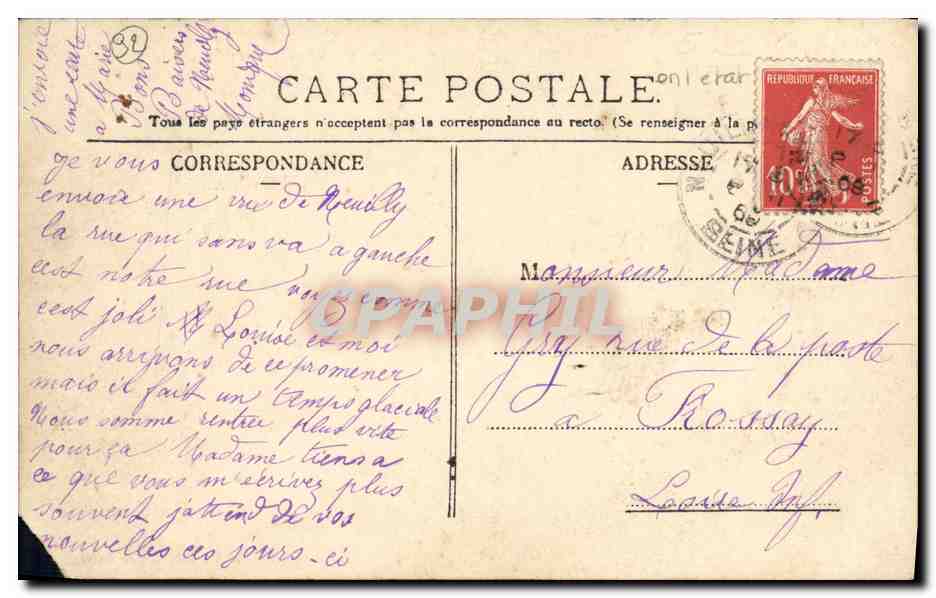 j'envoie
une carte
a Marie
Bons
Baisers
de Neuilly
92
CARTE POSTALE.
Tous les pays étrangers n'acceptent pas la correspondance au recto. (Se renseigner à la p
CORRESPONDANCE
ADRESSE
REPUBLIQUE FRANÇAISE
10
POSTES
SEINE
Je vous
envoie une vue de Neuilly
la rue qui sans va a gauche
cest notre rue voyez comme
cest joli Louise et moi
nous arrivons de ce promener
mais il fait un temps glaciale
Nous somme rentrée plus vite
pour ça Madame tiens a
ce que vous m'écrivez plus
souvent j'attend de vos
nouvelles ces jours-ci
Monsieur Madame
Gry rue de la poste
a Frossay
Loire Inf.
CPAPHIL